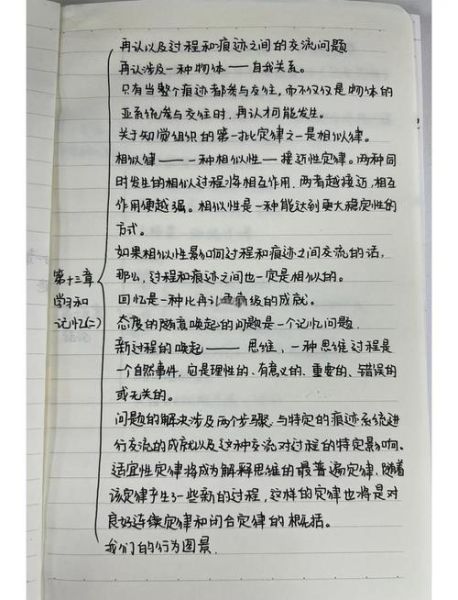 再认以及过程和痕迹之间的交流问题
再认涉及一种物体——自我关系。
只有当整个痕迹都参与交往，而不仅仅是物体的
亚系统参与交往时，再认才可能发生。
关于知觉组织的第一批定律之一是相似律。
相似律——一种相似性—接近性定律。两种同
时发生的相似过程将相互作用，两者越接近，相互
作用便越强。相似性是一种能达到更大稳定性的
方式。
如果相似性影响过程和痕迹之间交流的话，
那么，过程和痕迹之间也一定是相似的。
第十三章
学习和
记忆(二)
回忆是一种比再认更高级的成就。
态度的随意唤起的问题是一个记忆问题
新过程的唤起——思维，一种思维过程是
一个自然事件，它是理性的、有意义的、重要的、错误的
或无关的。
问题的解决涉及两个步骤，与特定的痕迹系统进
行交流的成就以及这种交流对过程的特定影响。
适宜性定律将成为解释思维的最普遍定律，随着
该定律产生了一些新的过程，这样的定律也将是对
良好连续定律和闭合定律的概括。
我们的行为图景.